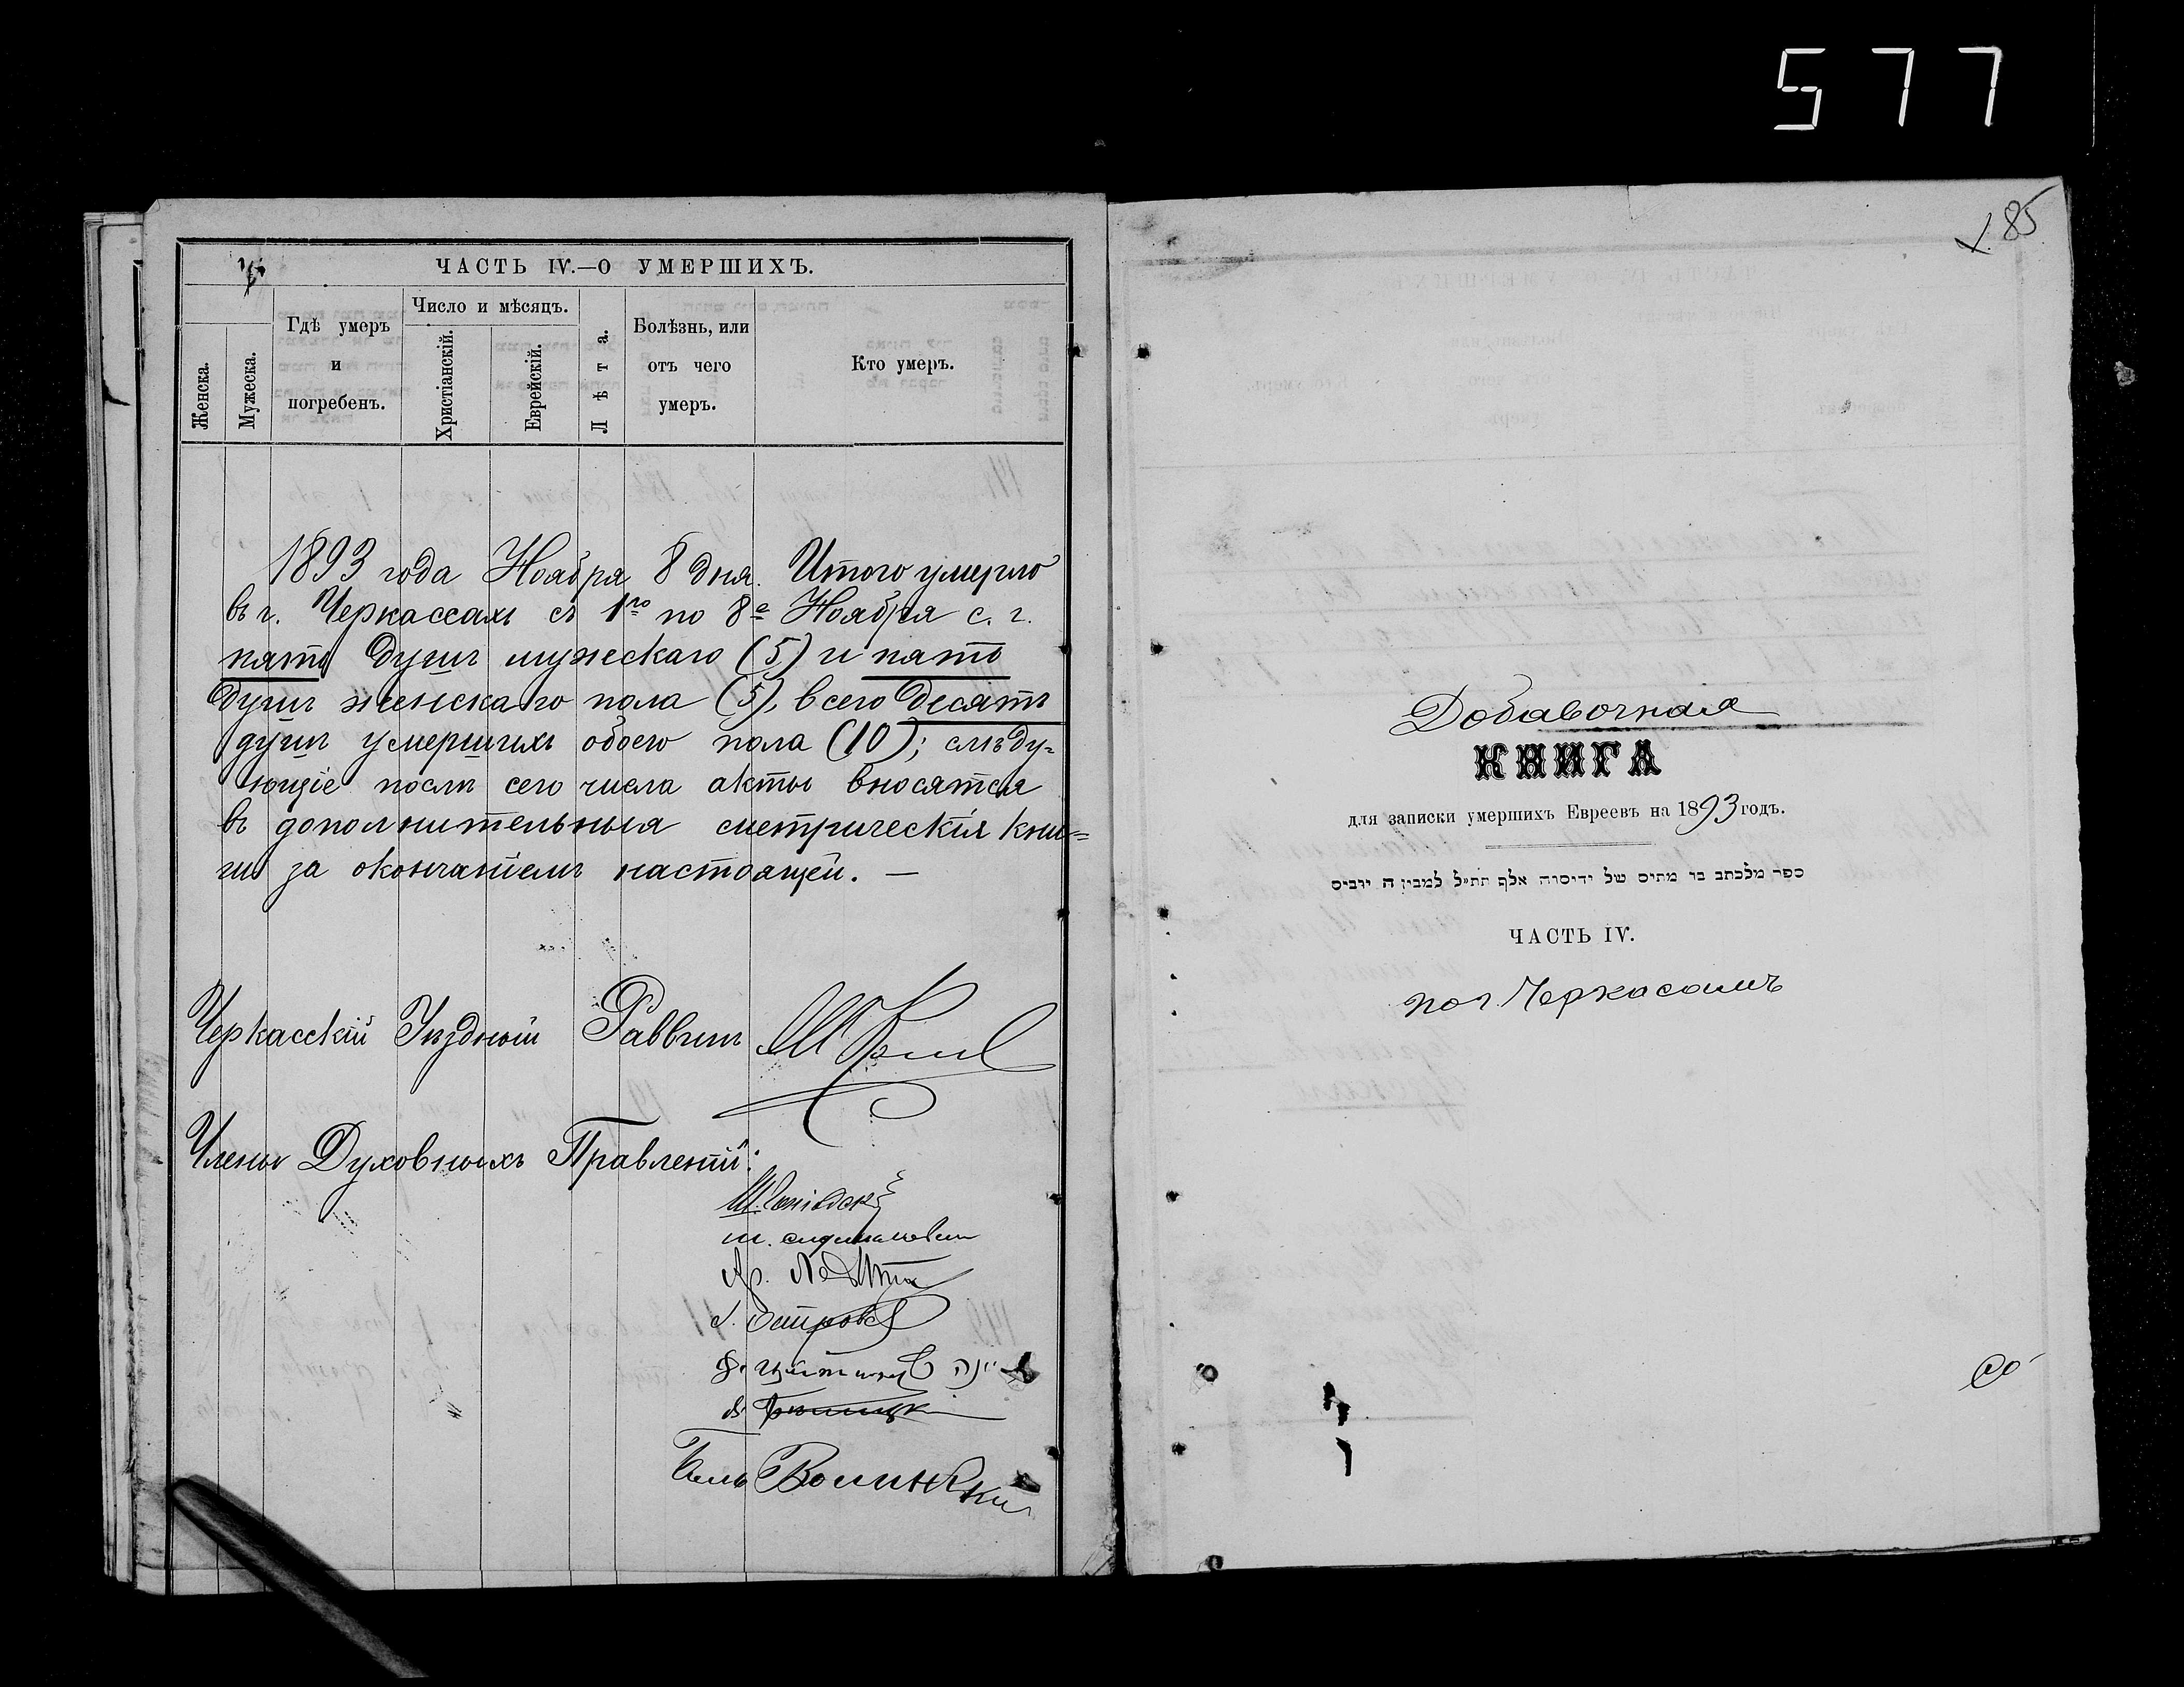 577
ЧАСТЬ IV.—О УМЕРШИХЪ.
Женска.
Мужеска.
Гдѣ умеръ
и
погребенъ.
Число и мѣсяцъ.
Христіанскій.
Еврейскій.
Лѣта.
Болѣзнь, или
отъ чего
умеръ.
Кто умеръ.
1893 года Ноября 8 дня. Итого умерло
въ г. Черкассахъ съ 1го по 8е Ноября с. г.
пять душъ мужескаго (5) и пять
душъ женскаго пола (5), всего десять
душъ умершихъ обоего пола (10); слѣду-
ющіе послѣ сего числа акты вносятся
въ дополнительныя метрическія кни-
ги за окончаніемъ настоящей. —
Черкасскій Уѣздный Раввинъ
Члены Духовныхъ Правленій:
85
Добавочная
КНИГА
для записки умершихъ Евреевъ на 1893 годъ.
ЧАСТЬ IV.
по г. Черкасамъ